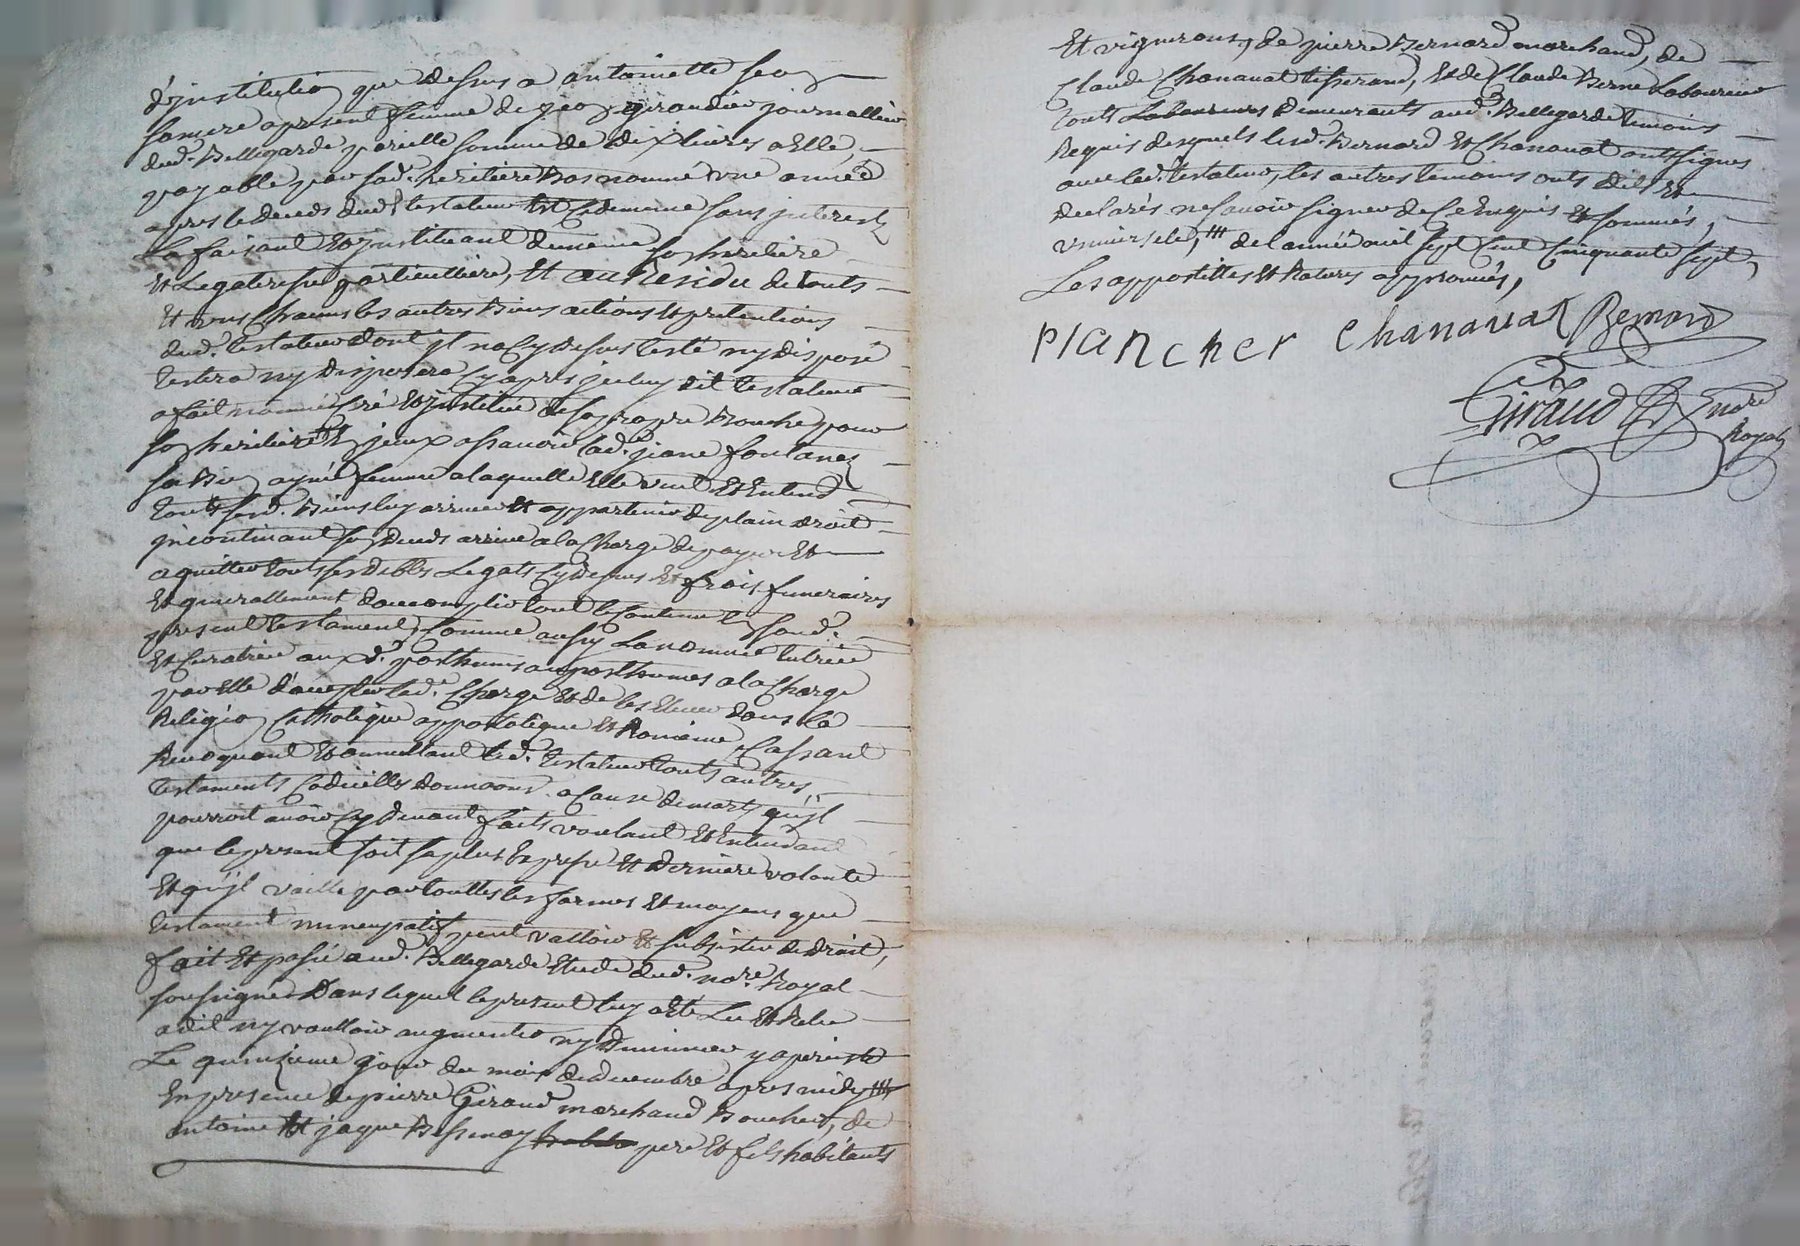 d'institution que dessus a antoinette
sa mere a present femme de jean giraudier journallier
dud. Bellegarde pareille somme de dix livres a Elle
payable par sad. heritiere bas nommé une année
apres le deceds dud. testateur Et Cedemeine sans interest
La faisant Et instituant de meme son heritiere
Et Legateresse particulliere, Et au Residu de touts
Et uns Chacuns les autres Biens actions Et pretentions
dud. testateur dont jl na Cy dessus testé ny disposé
testera ny disposera Cy apres jceluy dit testateur
a fait nommé Cré Et institué de sa propre Bouche pour
son heritiere assavoir lad. jeane fontanez
sa Bien aymée femme a laquelle Elle veut Et Entend
touts sesd. Biens luy arriver Et appartenir de plain droit
jncontinant son deceds arrivé a la Charge de payer Et
aquitter touts ses debtes Legats Cy dessus Et frois funeraires
Et generallement daccomplir tout le Contenu en sond.
present testament, Comme aussy La nommée tutrice
Et Curatrice aux d. posthume ou posthumes a la Charge
par Elle d'accepter lad. Charge Et de les Elever dans la
Religion Catholique appostolique Et Romaine, Cassant
Revoquant Et annullant led. testateur touts autres
testaments Codicilles donnaons a Cause de mort qu'jl
pourroit avoir Cy devant faits voulant Et Entendant
que le present soit sa plus Expresse Et derniere volonté
Et qu'jl vaille par touttes les formes Et moyens que
testament nuncupatif peut valloir Et subsister de droit,
fait Et passé aud. Bellegarde Etude dud. no.re Royal
soussigné Dans lequel le present luy a Eté Lu Et Relu
a dit ny voulloir augmenter ny diminuer y a persisté
Le quinzieme jour du mois de decembre apres midy
En presence de pierre Giraud marchand Boucher, de
antoine Et jaque pere Et fils habitants
Et vignerons, de pierre Bernard marchand, de
Claude Chanavat tisserand, Et de Claude Berne Laboureur
touts Demeurants aud. Bellegarde temoins
Requis desquels lesd. Bernard Et Chanavat ont signes
avec led. testateur, les autres temoins onts dits Et
declarés ne savoir signer de Ce Enquis Et sommés,
de l'année mil sept Cent Cinquante sept
Les appostilles Et Ratures approuvés,
Plancher Chanavat Bernard
Giraud No.re
Royal